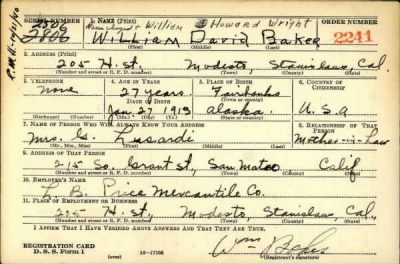 SERIAL NUMBER 1. NAME (Print) ORDER NUMBER
Name changed to William Howard Wright
2806 William David Baker 2241
(First) (Middle) (Last)
2. ADDRESS (Print)
205 H. St, Modesto, Stanislaus, Cal.
(Number and street or R. F. D. number) (Town) (County) (State)
3. TELEPHONE 4. AGE IN YEARS 5. PLACE OF BIRTH 6. COUNTRY OF CITIZENSHIP
None 27 years Fairbanks
DATE OF BIRTH (Town or county)
Jan. 27 1913 Alaska. U.S.A
(Mo.) (Day) (Yr.) (State or country)
7. NAME OF PERSON WHO WILL ALWAYS KNOW YOUR ADDRESS 8. RELATIONSHIP OF THAT PERSON
Mrs. C. Lusardi Mother-in-Law
(Mr., Mrs., Miss) (First) (Middle) (Last)
9. ADDRESS OF THAT PERSON
215 So. Grant St, San Mateo Calif
(Number and street or R. F. D. number) (Town) (County) (State)
10. EMPLOYER'S NAME
L. B. Price Mercantile Co.
11. PLACE OF EMPLOYMENT OR BUSINESS
205 H. St, Modesto, Stanislaus, Cal,
(Number and street or R. F. D. number) (Town) (County) (State)
I AFFIRM THAT I HAVE VERIFIED ABOVE ANSWERS AND THAT THEY ARE TRUE.
REGISTRATION CARD
D. S. S. Form 1 16-17105